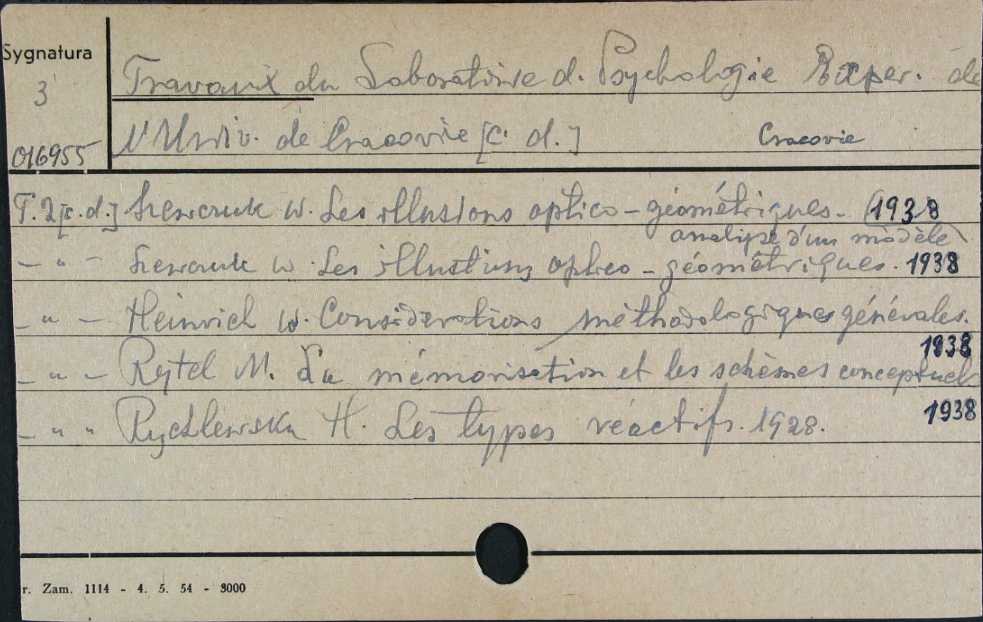 Sygnatura
3
016955
Travaux du Laboratoire d. Psychologie Exper. de
l'Univ. de Cracovie [c. d.] Cracovie
T. 2 [c. d.] Szewczuk W. Les illusions optico-géométriques. 1938
analyse d'un modèle
- " - Szewczuk W. Les illusions optico-géométriques. 1938
- " - Heinrich W. Considerations méthodologiques générales.
1938
- " - Rytel M. La mémorisation et les schèmes conceptuels
- " - Rychlewska H. Les types réactifs. 1928. 1938
r. Zam. 1114 - 4. 5. 54 - 3000